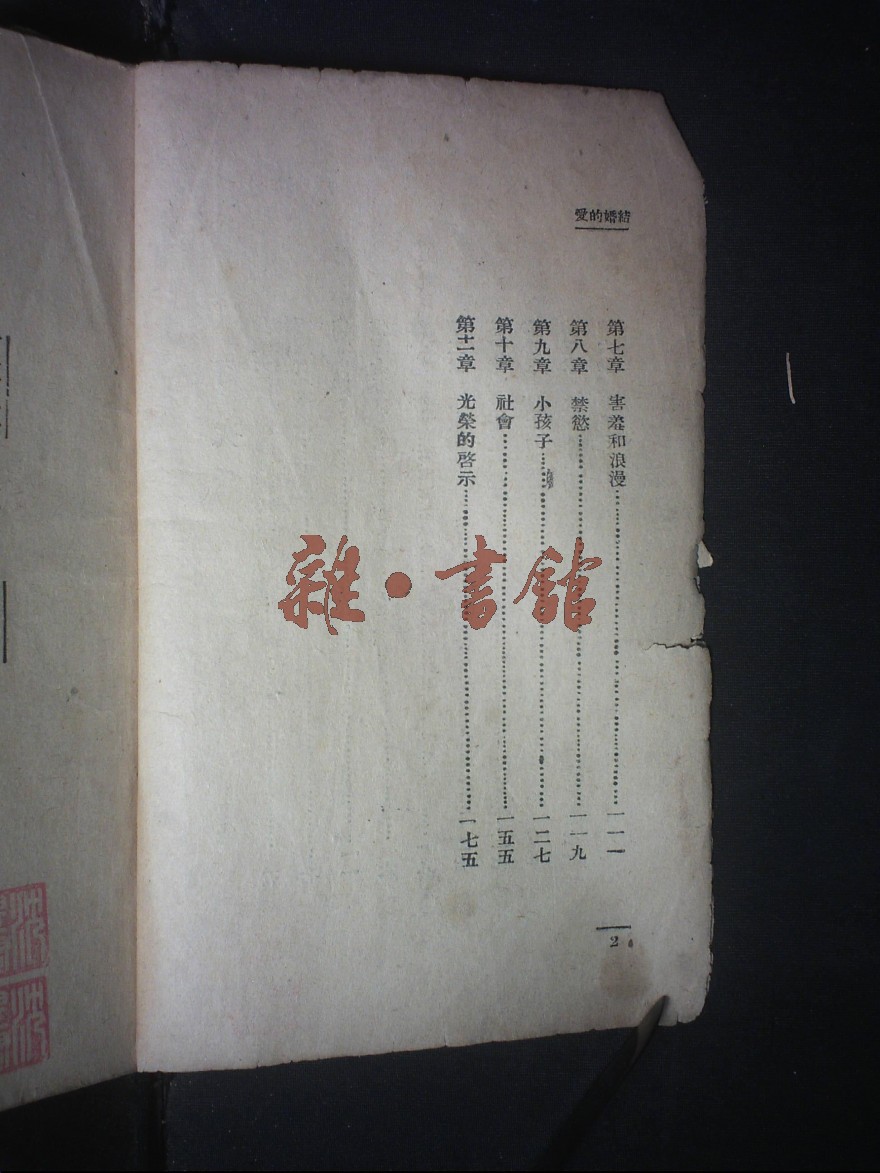 結婚的愛
第七章 害羞和浪漫……一一一
第八章 禁慾……一一九
第九章 小孩子……一二七
第十章 社會……一五五
第十一章 光榮的啓示……一七五
2
雜·書館